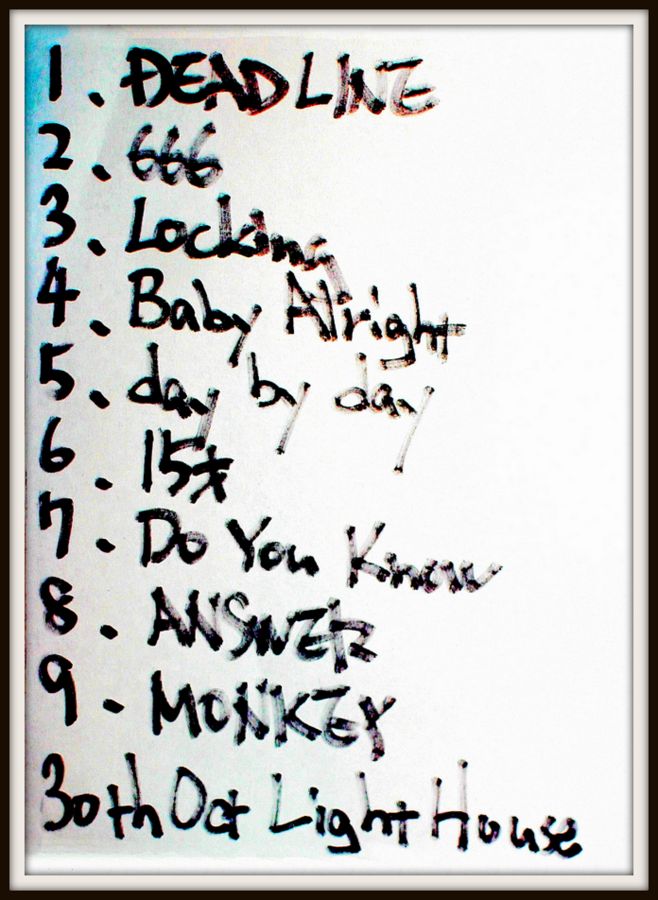 1. DEADLINE
2. 666
3. Locking
4. Baby Alright
5. day by day
6. 15才
7. Do You Know
8. ANSWER
9. MONKEY
30th Oct Light House